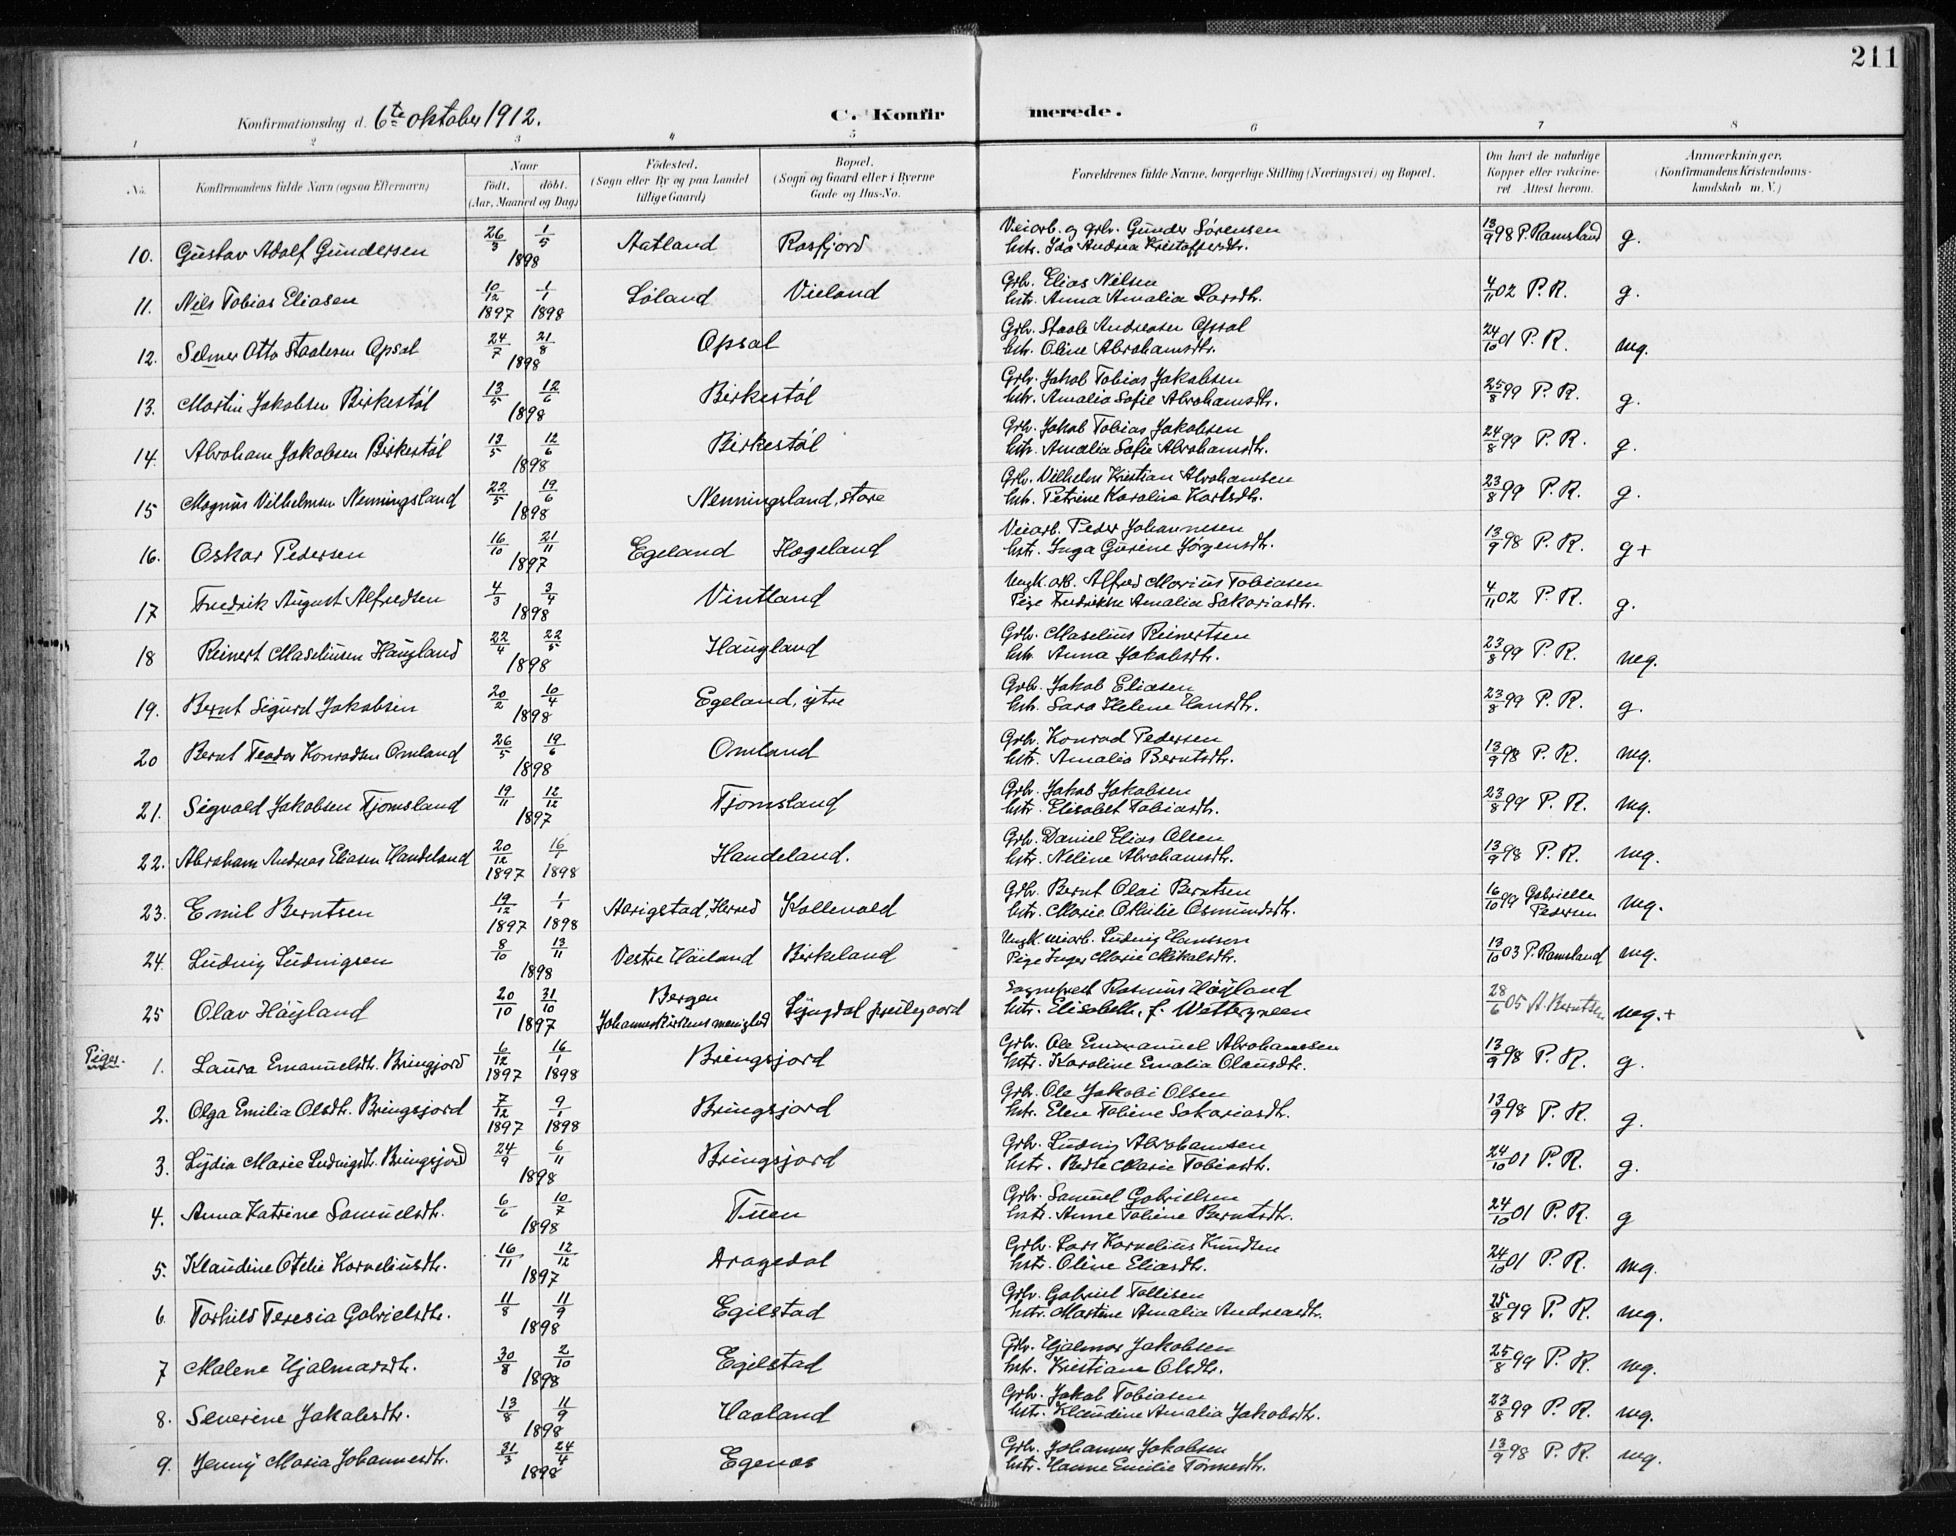 211
Konfirmationsdag d. 6te oktober 1912. C. Konfirmerede.
1 2 3 4 5 6 7 8
No. Konfirmandens fulde Navn (ogsaa Efternavn) Naar født, døbt. (Aar, Maaned og Dag) Fødested. (Sogn eller By og paa Landet tillige Gaard) Bopæl. (Sogn og Gaard eller i Byerne Gade og Hus-No. Forældrenes fulde Navne, borgerlige Stilling (Næringsvei) og Bopæl. Om havt de naturlige Kopper eller vaccineret Attest herom. Anmærkninger, (Konfirmandens Kristendomskundskab m. V.)
10. Gustav Adolf Gundersen 26/3 1/5 1898 Aatland Rosfjord Veiarb. og grb. Gunder Sørensen
hstr. Ida Andrea Kristoffersdtr. 13/9 98 P. Ramsland g.
11. Nils Tobias Eliasen 10/12 1897 1/1 1898 Løland Vieland Grb. Elias Nilsen
hstr. Anna Amalia Larsdtr. 4/11 02 P. R. g.
12. Selmer Otto Staalesen Opsal 24/7 21/8 1898 Opsal Grb. Staale Andreasen Opsal
hstr. Oline Abrahamsdtr. 24/10 01 P. R. mg.
13. Martin Jakobsen Birkestøl 13/5 12/6 1898 Birkestøl Grb. Jakob Tobias Jakobsen
hstr. Amalia Sofie Abrahamsdtr. 25/8 99 P. R. g.
14. Abraham Jakobsen Birkestøl 13/5 12/6 1898 Birkestøl Grb. Jakob Tobias Jakobsen
hstr. Amalia Sofie Abrahamsdtr. 24/8 99 P. R. g.
15 Magnus Vilhelmsen Nenningsland 22/5 19/6 1898 Nenningsland, store Grb. Vilhelm Kristian Abrahamsen
hstr. Petrine Karoline Karlsdtr. 23/8 99 P. R. g.
16. Oskar Pedersen 16/10 21/11 1897 Egeland Hogeland Veiarb. Peder Johannesen
hstr. Inga Gurine Jørgensdtr. 13/9 98 P. R. g+
17 Fredrik August Alfredsen 4/3 3/4 1898 Vintland Ungk. arb. Alfred Marius Tobiasen
Pige Fredrikke Amalia Sakariasdtr. 4/11 02 P. R. g.
18 Reinert Maseliusen Haugland 22/4 22/5 1898 Haugland Grb. Maselius Reinertsen
hstr. Anna Jakobsdtr. 23/8 99 P. R. mg.
19. Bernt Sigurd Jakobsen 20/2 10/4 1898 Egeland, ytre Grb. Jakob Eliasen
hstr. Sara Helene Hansdtr. 23/8 99 P. R. g.
20 Bernt Teodor Konradsen Omland 26/5 19/6 1898 Omland Grb. Konrad Pedersen
hstr. Amalia Berntsdtr. 13/9 98 P. R. mg.
21. Sigvald Jakobsen Tjomsland 19/11 12/12 1897 Tjomsland Grb. Jakob Jakobsen
hstr. Elisabet Tobiasdtr. 23/8 99 P. R. mg.
22. Abraham Andreas Eliasen Handeland 20/12 1897 16/1 1898 Handeland. Grb. Daniel Elias Olsen
hstr. Neline Abrahamsdtr. 13/9 98 P. R. mg.
23. Emil Berntsen 19/12 1897 1/1 1898 Aavigstad, Herred Kollevold Grb. Bernt Olai Berntsen
hstr. Marie Othilie Osmundsdtr. 16/10 99 Gabrielle Pedersen mg.
24. Ludvig Ludvigsen 8/10 13/11 1898 Vestre Håiland Birkeland Ungk. veiarb. Ludvig Hansson
Pige Inger Marie Mikalsdtr. 13/10 03 P. Ramsland mg.
25 Olav Høyland 20/10 31/10 1897 Bergen Johanneskirkens menighed Lyngdal prestegaard Sogneprest Rasmus Høyland
hstr. Elisabeth, f. Wattergreen 28/6 05 A. Berntsen mg.+
Piger.
1. Laura Emanuelsdtr. Bringsjord 6/12 1897 16/1 1898 Bringsjord Grb. Ole Emmanuel Abrahamsen
hstr. Karoline Emalia Olausdtr. 13/9 98 P. R. g.
2. Olga Emilia Olsdtr. Bringsjord 7/12 1897 9/1 1898 Bringsjord Grb. Ole Jakobi Olsen
hstr. Elen Tobine Sakariasdtr. 13/9 98 P. R. g.
3. Lydia Marie Ludvigsdtr. Bringsjord 24/9 6/11 1898 Bringsjord Grb. Ludvig Abrahamsen
hstr. Berte Marie Tobiasdtr. 24/10 01 P. R. g.
4. Anna Katrine Samuelsdtr. 6/6 10/7 1898 Tuen Grb. Samuel Gabrielsen
hstr. Anne Tobine Berntsdtr. 24/10 01 P. R. g
5. Klaudine Otelie Korneliusdtr. 16/11 12/12 1897 Dragedal Grb. Lars Kornelius Knudsen
hstr. Oline Eliasdtr. 24/10 01 P. R. mg.
6 Torhild Teresia Gabrielsdtr. 11/8 11/9 1898 Egilstad Grb. Gabriel Tollisen
hstr. Martine Amalia Andreasdtr. 25/8 99 P. R. mg.
7 Malene Hjalmarsdtr. 30/8 2/10 1898 Egilstad Grb. Hjalmar Jakobsen
hstr. Kristiane Olsdtr. 25/8 99 P. R. mg.
8. Severine Jakobsdtr. 13/8 11/9 1898 Haaland Grb. Jakob Tobiasen
hstr. Klaudine Amalia Jakobsdtr. 23/8 99 P. R. mg.
9. Jenny Maria Johannesdtr. 31/3 24/4 1898 Egenes Grb. Johannes Jakobsen
hstr. Hanne Emilie Tomesdtr. 13/9 98 P. R. mg.